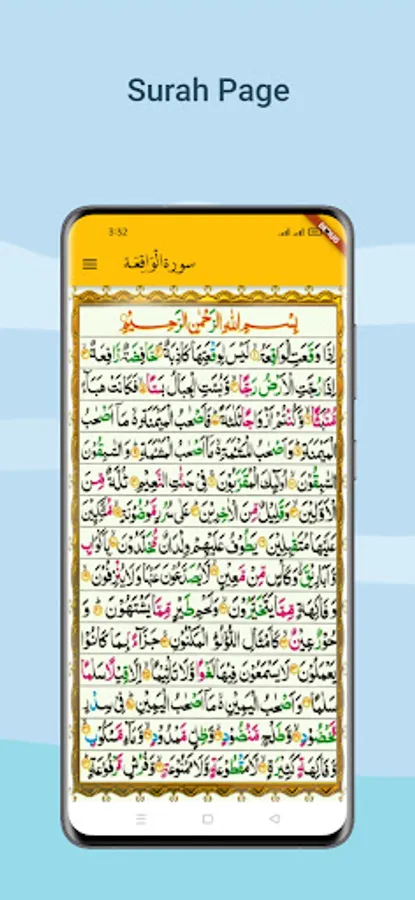 Surah Page
3:52
سورة الْوَاقِعَة
بِسْمِ اللهِ الرَّحْمٰنِ الرَّحِيْمِ
اِذَا وَقَعَتِ الْوَاقِعَةُ لَيْسَ لِوَقْعَتِهَا كَاذِبَةٌ خَافِضَةٌ رَّافِعَةٌ
اِذَا رُجَّتِ الْاَرْضُ رَجًّا وَّبُسَّتِ الْجِبَالُ بَسًّا فَكَانَتْ هَبَآءً
مُّنْۢبَثًّا وَّكُنْتُمْ اَزْوَاجًا ثَلٰثَةً فَاَصْحٰبُ الْمَيْمَنَةِ مَاۤ اَصْحٰبُ
الْمَيْمَنَةِ وَاَصْحٰبُ الْمَشْـَٔمَةِ مَاۤ اَصْحٰبُ الْمَشْـَٔمَةِ وَالسّٰبِقُوْنَ
السّٰبِقُوْنَ اُولٰٓئِكَ الْمُقَرَّبُوْنَ فِيْ جَنّٰتِ النَّعِيْمِ ثُلَّةٌ مِّنَ
الْاَوَّلِيْنَ وَقَلِيْلٌ مِّنَ الْاٰخِرِيْنَ عَلٰى سُرُرٍ مَّوْضُوْنَةٍ مُّتَّكِـِٕيْنَ
عَلَيْهَا مُتَقٰبِلِيْنَ يَطُوْفُ عَلَيْهِمْ وِلْدَانٌ مُّخَلَّدُوْنَ بِاَكْوَابٍ
وَّاَبَارِيْقَ وَكَاْسٍ مِّنْ مَّعِيْنٍ لَّا يُصَدَّعُوْنَ عَنْهَا وَلَا يُنْزِفُوْنَ
وَفَاكِهَةٍ مِّمَّا يَتَخَيَّرُوْنَ وَلَحْمِ طَيْرٍ مِّمَّا يَشْتَهُوْنَ وَ
حُوْرٌ عِيْنٌ كَاَمْثَالِ اللُّؤْلُؤِ الْمَكْنُوْنِ جَزَآءًۢ بِمَا كَانُوْا
يَعْمَلُوْنَ لَا يَسْمَعُوْنَ فِيْهَا لَغْوًا وَّلَا تَاْثِيْمًا اِلَّا قِيْلًا سَلٰمًا
سَلٰمًا وَاَصْحٰبُ الْيَمِيْنِ مَاۤ اَصْحٰبُ الْيَمِيْنِ فِيْ سِدْرٍ
مَّخْضُوْدٍ وَّطَلْحٍ مَّنْضُوْدٍ وَّظِلٍّ مَّمْدُوْدٍ وَّمَآءٍ مَّسْكُوْبٍ
وَّفَاكِهَةٍ كَثِيْرَةٍ لَّا مَقْطُوْعَةٍ وَّلَا مَمْنُوْعَةٍ وَّفُرُشٍ مَّرْفُوْعَةٍ